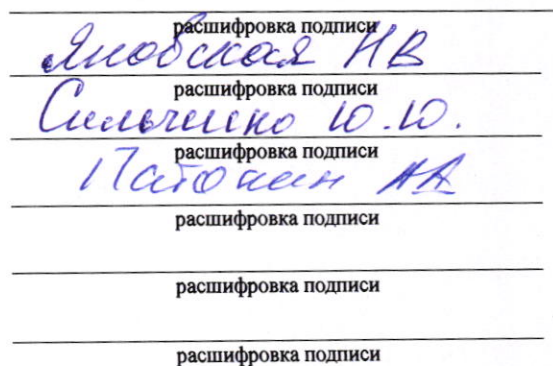 расшифровка подписи
Яновская НВ
расшифровка подписи
Сильченко Ю.Ю.
расшифровка подписи
Патокин АА
расшифровка подписи
расшифровка подписи
расшифровка подписи